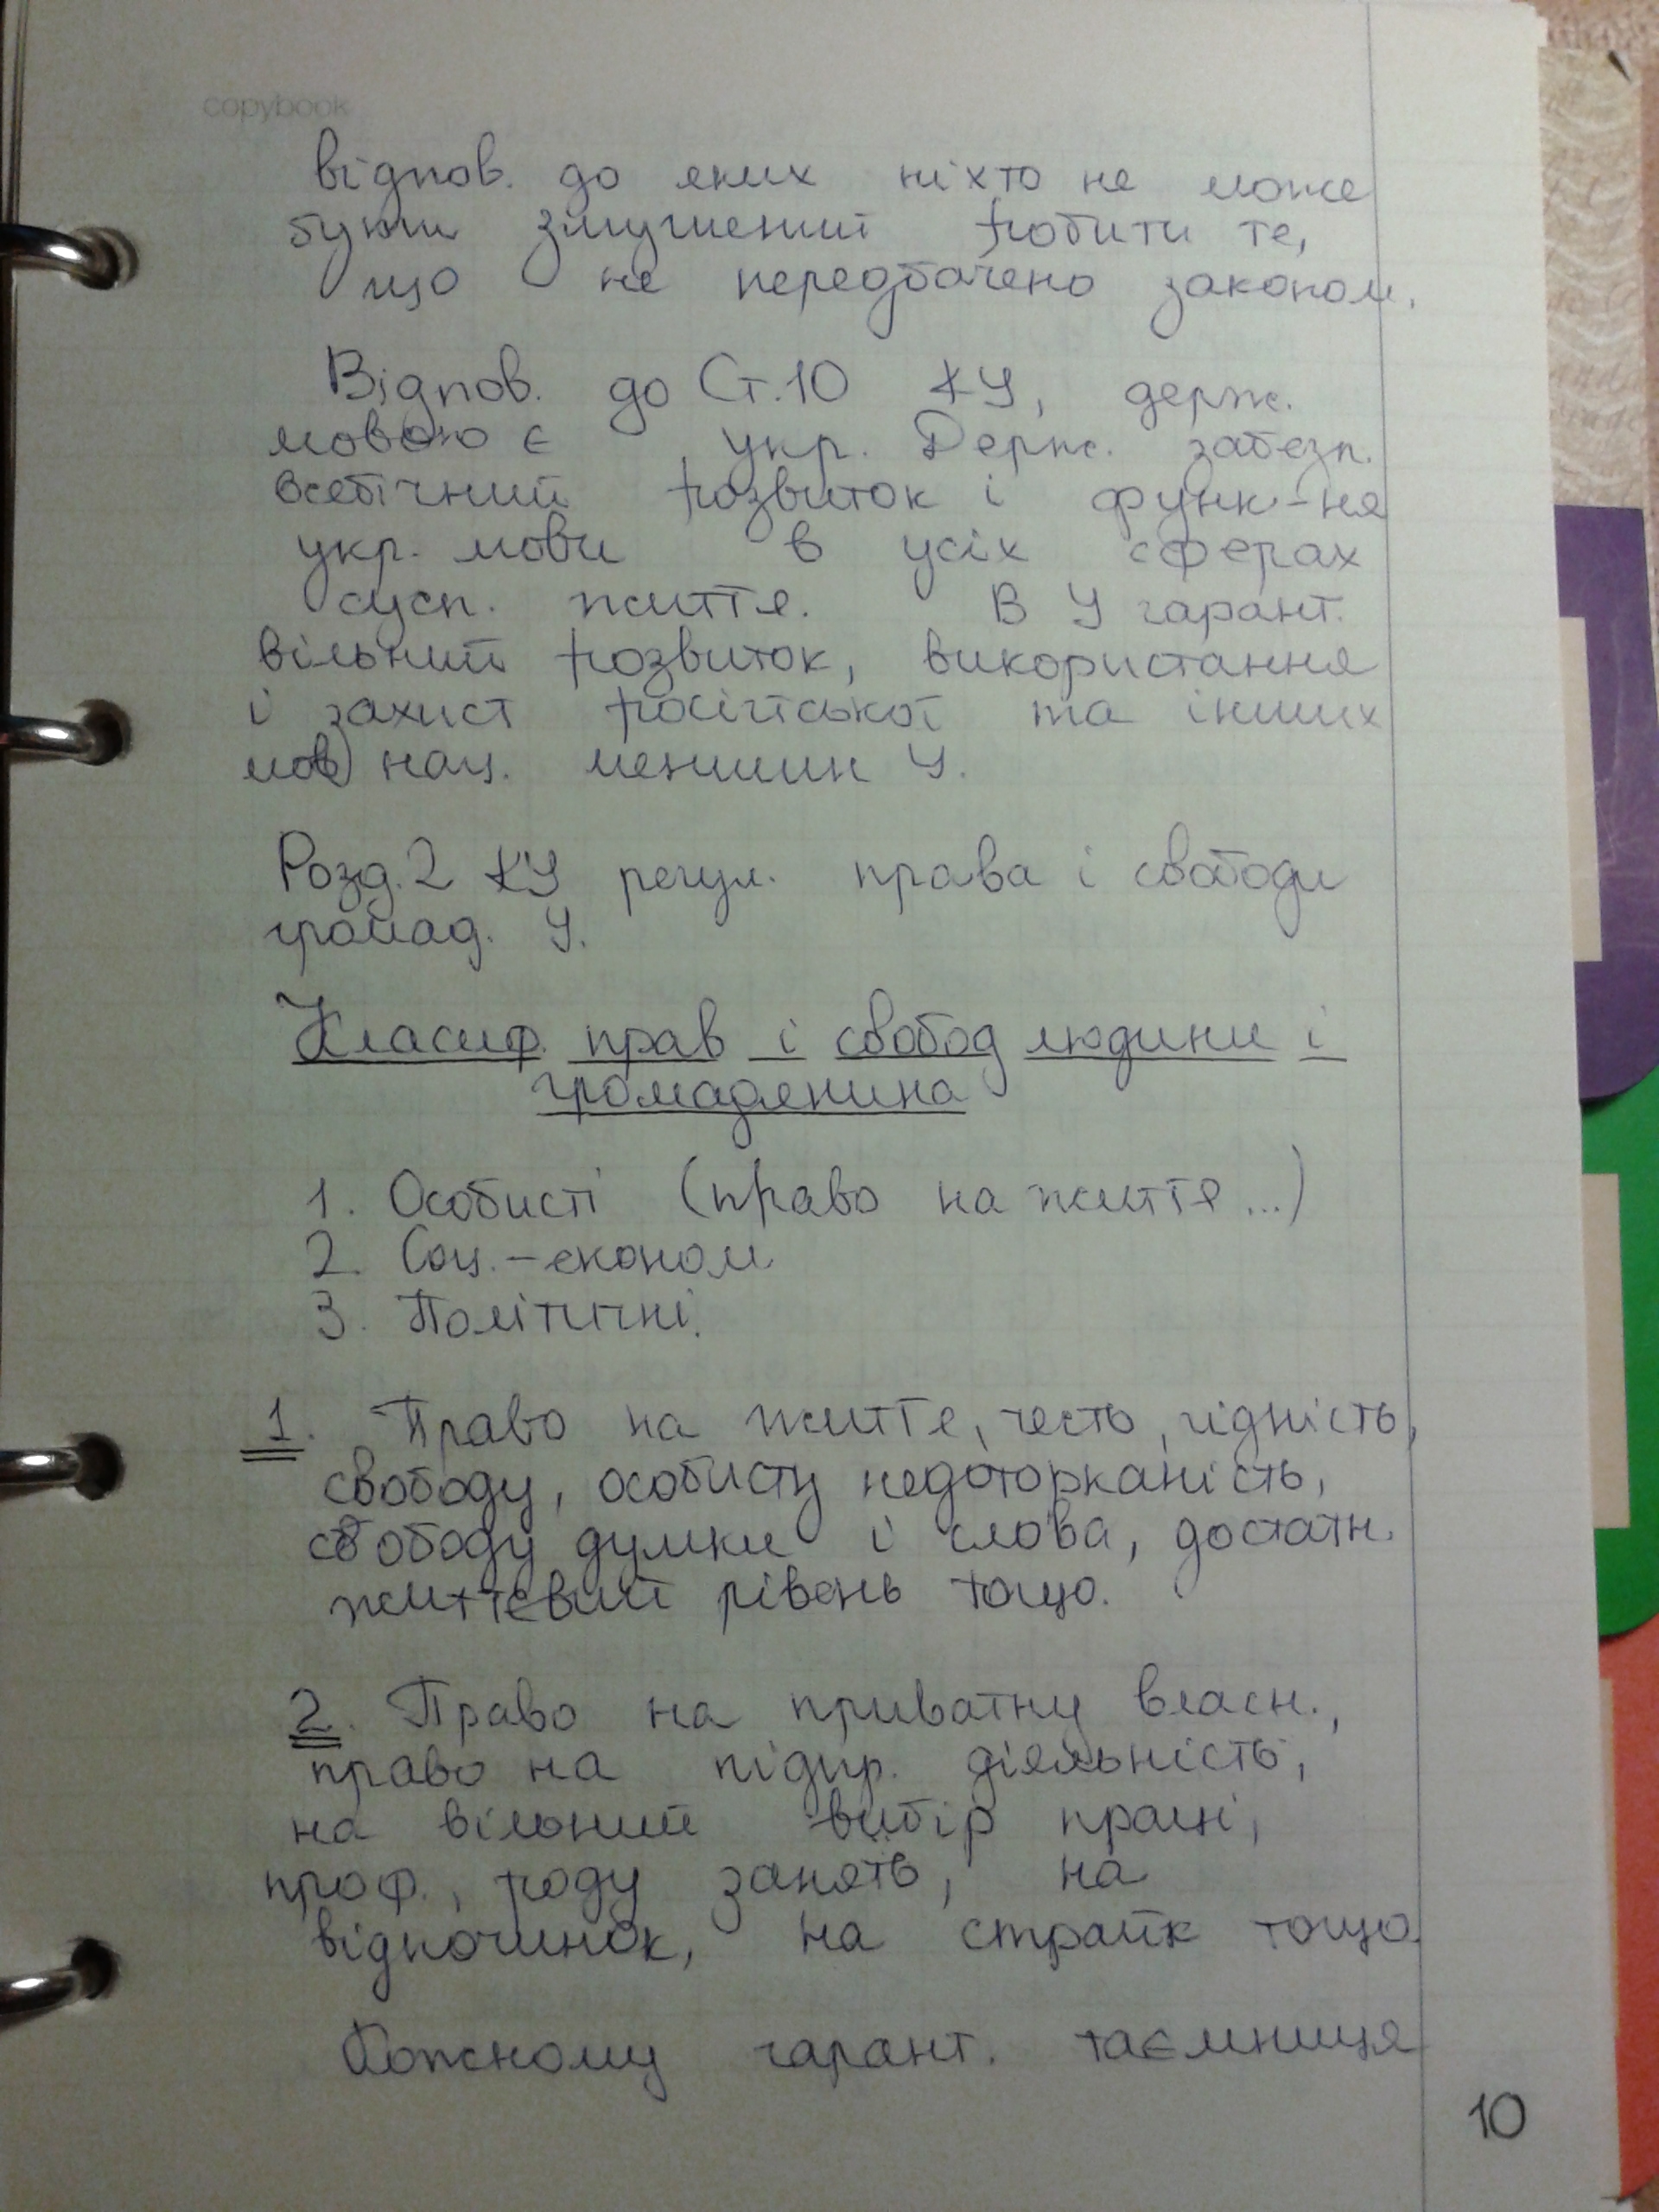 copybook
відпов. до яких ніхто не може
бути змушений робити те,
що не передбачено законом.
Відпов. до Ст.10 КУ, держ.
мовою є укр. Держ. забезп.
всебічний розвиток і функ-ня
укр. мови в усіх сферах
сусп. життя. В У гарант.
вільний розвиток, використання
і захист російської та інших
мов нац. меншин У.
Розд.2 КУ регул. права і свободи
громад. У.
Класиф. прав і свобод людини і
громадянина
1. Особисті (право на життя...)
2. Соц.-економ
3. Політичні.
1. Право на життя, честь, гідність,
свободу, особисту недоторканість,
свободу думки і слова, достатн.
життєвий рівень тощо.
2. Право на приватну власн.,
право на підпр. діяльність,
на вільний вибір праці,
проф., роду занять, на
відпочинок, на страйк тощо.
Кожному гарант. таємниця
10